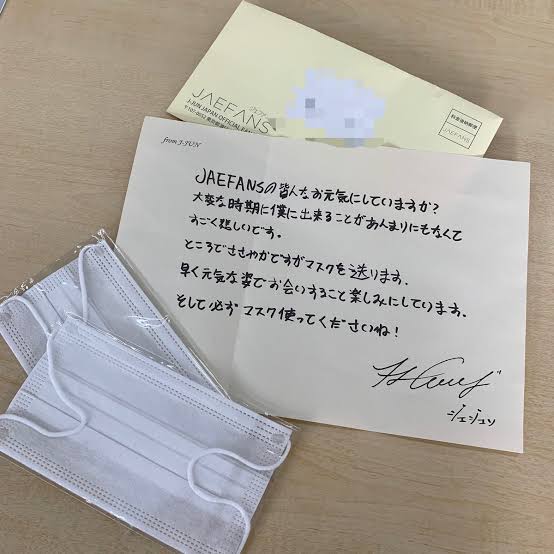 JAEFANS
J-JUN JAPAN OFFICIAL
料金後納郵便
JAEFANS
from J-JUN
JAEFANSの皆んなお元気にしていますか?
大変な時期に僕に出来ることがあんまりにもなくて
すごく悲しいです。
ところでささやかですがマスクを送ります.
早く元気な姿でお会いすること楽しみにしています.
そして必ずマスク使ってくださいね!
ジェジュン